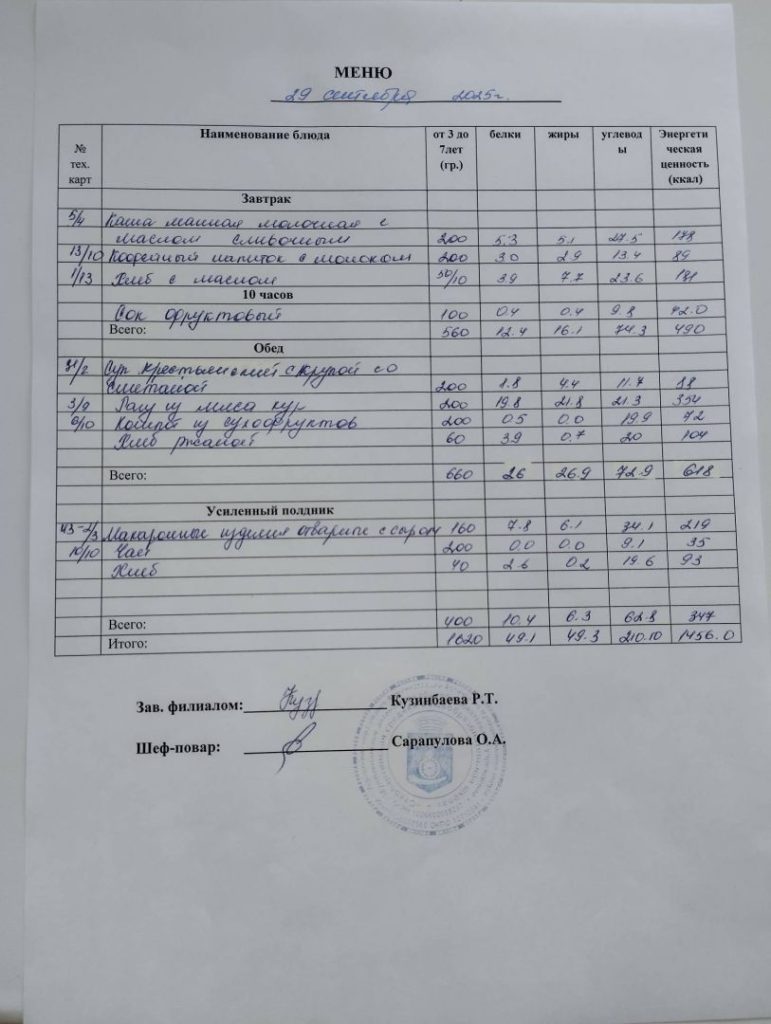 МЕНЮ
29 сентября 2025г.
№ тех. карт Наименование блюда от 3 до 7лет (гр.) белки жиры углеводы Энергетическая ценность (ккал)
Завтрак
5/4 Каша манная молочная с
маслом сливочным 200 5.3 5.1 27.5 178
13/10 Кофейный напиток с молоком 200 3.0 2.9 13.4 89
1/13 Хлеб с маслом 50/10 3.9 7.7 23.6 181
10 часов
Сок фруктовый 100 0.4 0.4 9.8 42.0
Всего: 560 12.4 16.1 74.3 490
Обед
31/2 Суп крестьянский с крупой со
сметаной 200 1.8 4.4 11.7 88
3/9 Рагу из мяса кур 200 19.8 21.8 21.3 354
6/10 Компот из сухофруктов 200 0.5 0.0 19.9 72
Хлеб ржаной 60 3.9 0.7 20 104
Всего: 660 26 26.9 72.9 618
Усиленный полдник
43-2/3 Макаронные изделия отварные с сыром 160 7.8 6.1 34.1 219
10/10 Чай 200 0.0 0.0 9.1 35
Хлеб 40 2.6 0.2 19.6 93
Всего: 400 10.4 6.3 62.8 347
Итого: 1620 49.1 49.3 210.10 1456.0
Зав. филиалом: Кузинбаева Р.Т.
Шеф-повар: Сарапулова О.А.